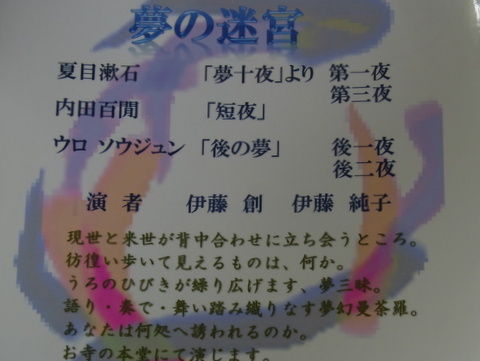 夢の迷宮
夏目漱石 「夢十夜」より 第一夜
第三夜
内田百閒 「短夜」
ウロ ソウジュン 「後の夢」 後一夜
後二夜
演者 伊藤 創 伊藤 純子
現世と来世が背中合わせに立ち会うところ。
彷徨い歩いて見えるものは、何か。
うろのひびきが繰り広げます、夢三昧。
語り・奏で・舞い踏み織りなす夢幻曼荼羅。
あなたは何処へ誘われるのか。
お寺の本堂にて演じます。